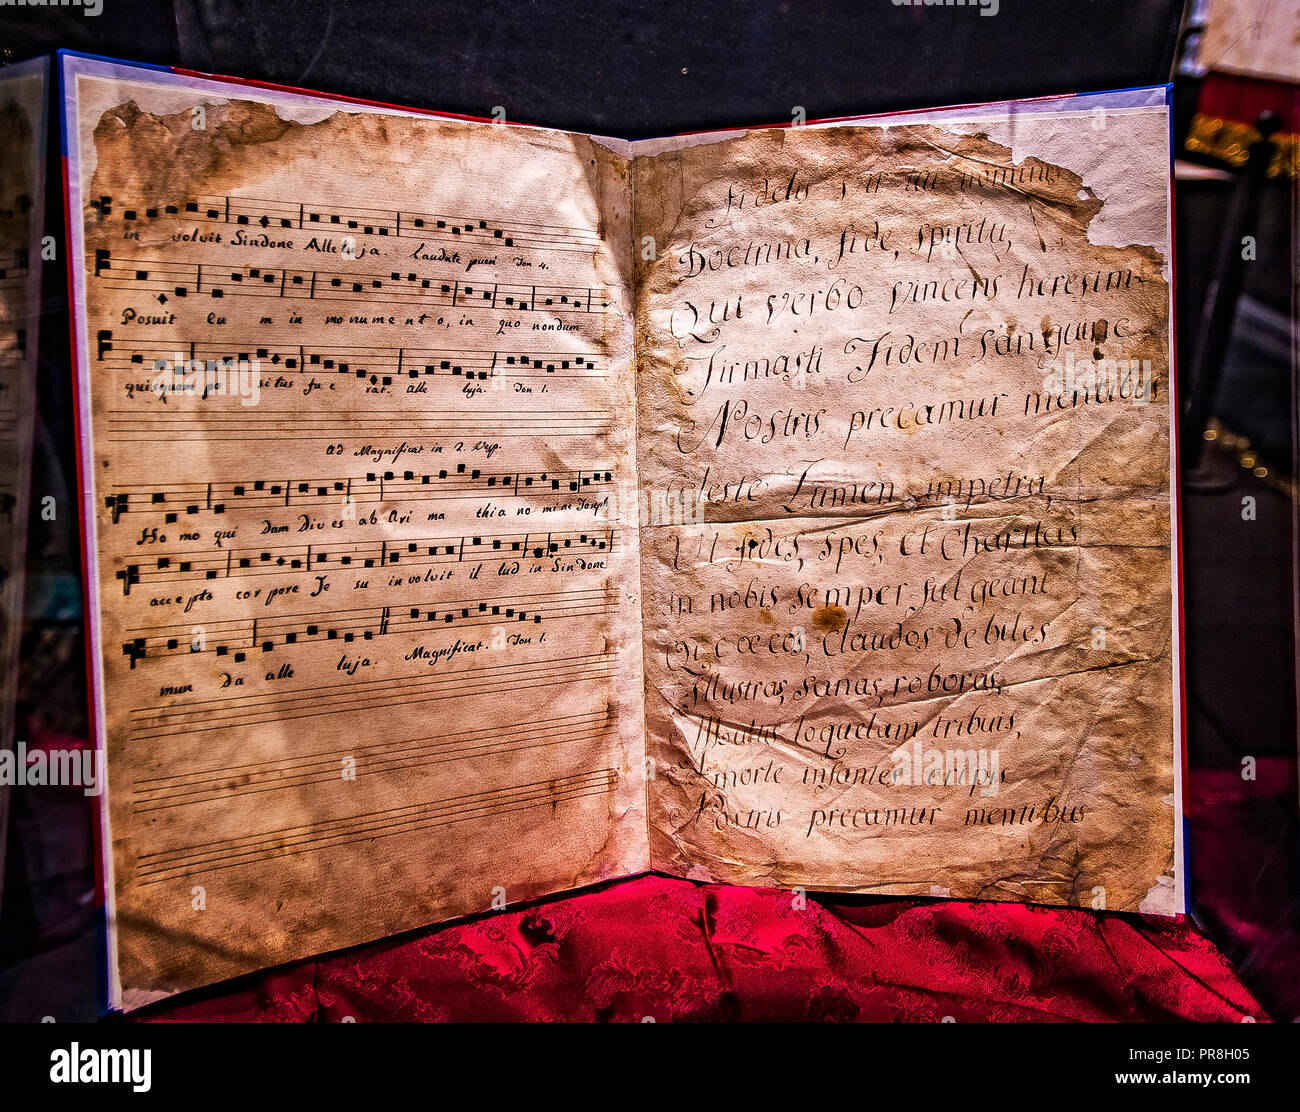 in volvit Sindone Alleluja. Laudate pueri Ton 4.
Posuit eu m in mo nu me nt o, in quo nondum
quisquam po situs fue rat. alle luja. Ton 1.
Ad Magnificat in 2. Vesp.
Ho mo qui dam div es ab Ari ma thia no mi ne Joseph
accepto cor pore Je su in volvit il lud in Sin done
mun da alle luja. Magnificat. Ton 1.
Fidelis nominis
Doctrina, fide, spiritu,
Qui verbo vincens heresim
Firmasti Fidem sanguine
Nostris precamur mentibus
Celeste Lumen impetra,
Ut fides, spes, et Charitas
in nobis semper fulgeant
Qui coecos, claudos debiles
Illustras, sanas, roboras,
Multis loquelam tribuis,
A morte infantes eripis
Nostris precamur mentibus
alamy
Image ID: PR8H05
www.alamy.com